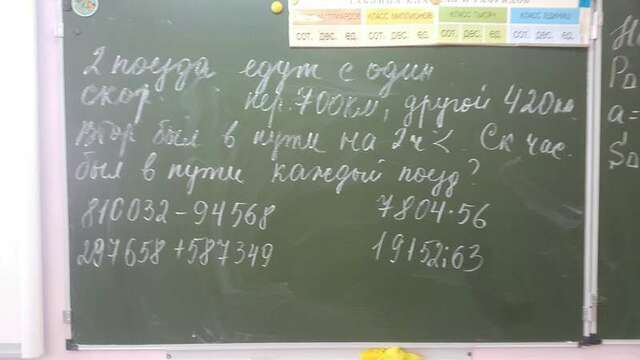 КЛАСС МИЛЛИОНОВ КЛАСС ТЫСЯЧ КЛАСС ЕДИНИЦ
сот. дес. ед. сот. дес. ед. сот. дес. ед. сот. дес. ед.
2 поезда едут с один
скор. пер. 700км, другой 420км
Втор был в пути на 2ч <. Ск час.
был в пути каждый поезд?
810032-94568 7804·56
297658+587349 19152:63
а=